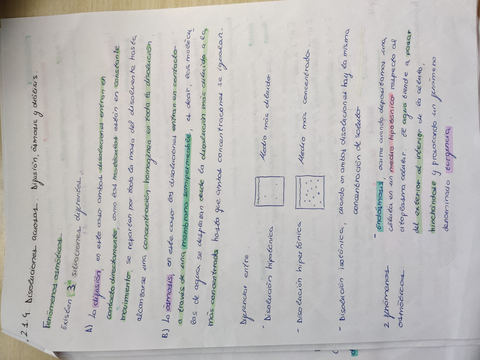 2.1.9. Disoluciones acuosas. Difusión, ósmosis y diálisis.
Fenómenos osmóticos
Existen 3 situaciones diferentes.
A) La difusión, en este caso ambas disoluciones entran en
contacto directamente, como las moléculas están en constante
movimiento, se reparten por toda la masa del disolvente hasta
alcanzarse una concentración homogénea en toda la disolución
B) La osmosis, en este caso las disoluciones entran en contacto
a través de una membrana semipermeable, es decir, las molécu-
las de agua se desplazan desde la disolución más diluida a la
más concentrada hasta que ambas concentraciones se igualan.
Diferenciar entre
- Disolución hipotónica Medio más diluido
- Disolución hipertónica Medio más concentrado
- Disolución isotónica, cuando en ambas disoluciones hay la misma
concentración de soluto
2 fenómenos
osmóticos
- Endósmosis ocurre cuando depositamos una
célula en un medio hipotónico respecto al
citoplasma celular. El agua tiende a pasar
del exterior al interior de la célula,
hinchándose y provocando un fenómeno
denominado turgencia.